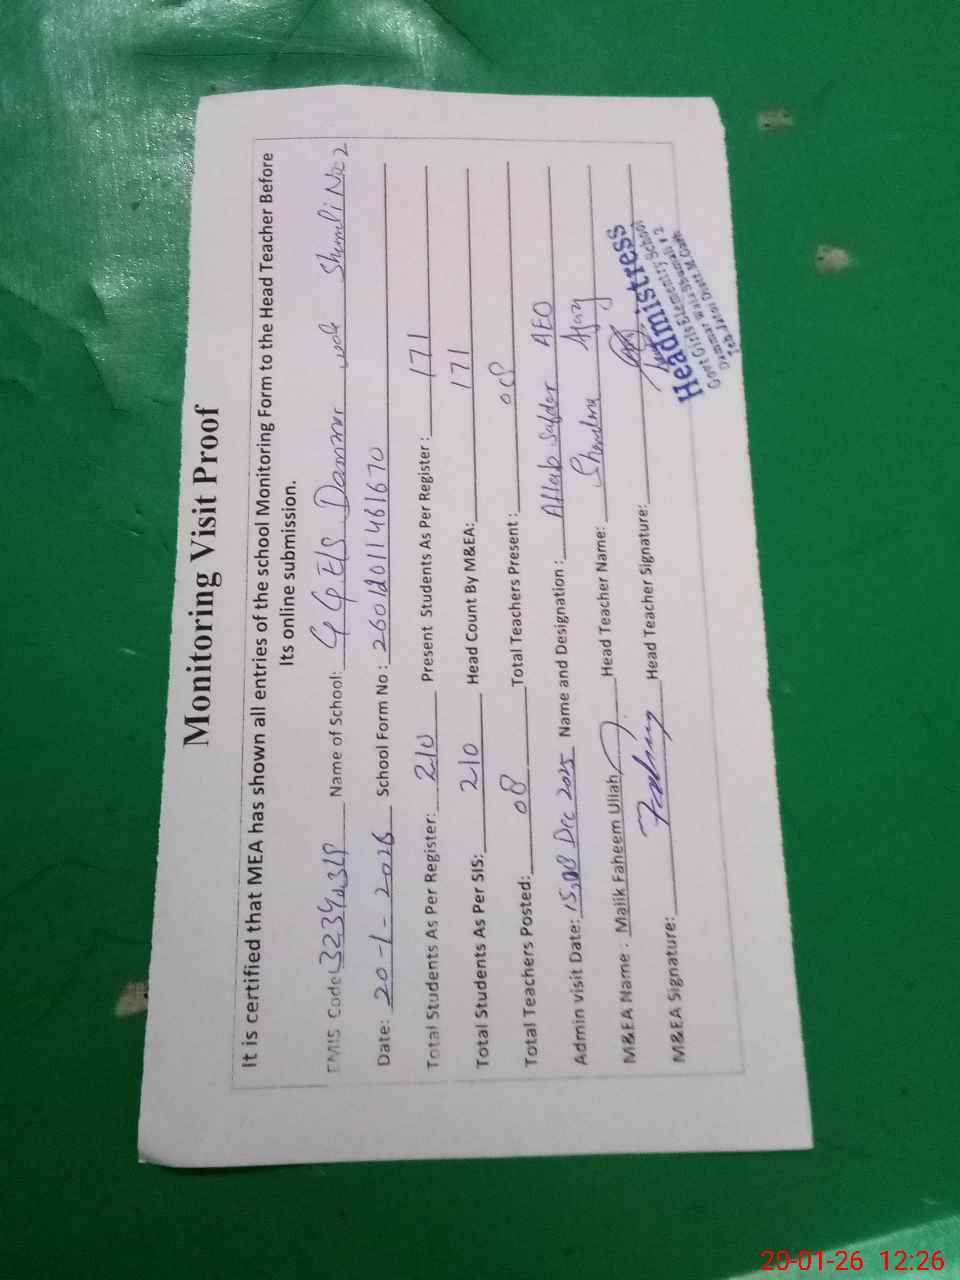 Monitoring Visit Proof
It is certified that MEA has shown all entries of the school Monitoring Form to the Head Teacher Before
Its online submission.
EMIS Code: Name of School: GGE/S Dammar wala Shumali No: 2
Date: 20-1-2026 School Form No: 2601201146 1670
Total Students As Per Register: 210 Present Students As Per Register: 171
Total Students As Per SIS: 210 Head Count By M&EA: 171
Total Teachers Posted: 08 Total Teachers Present: 08
Admin visit Date: 15, 08 Dec 2025 Name and Designation: Aftab Safdar AEO
M&EA Name: Malik Faheem Ullah Head Teacher Name: Ajaz
M&EA Signature: Head Teacher Signature:
Headmistress
Govt Girls Elementry School
Dammar Wala Shumali # 2
Teh Jatoi Distt M.Garh
20-01-26 12:26